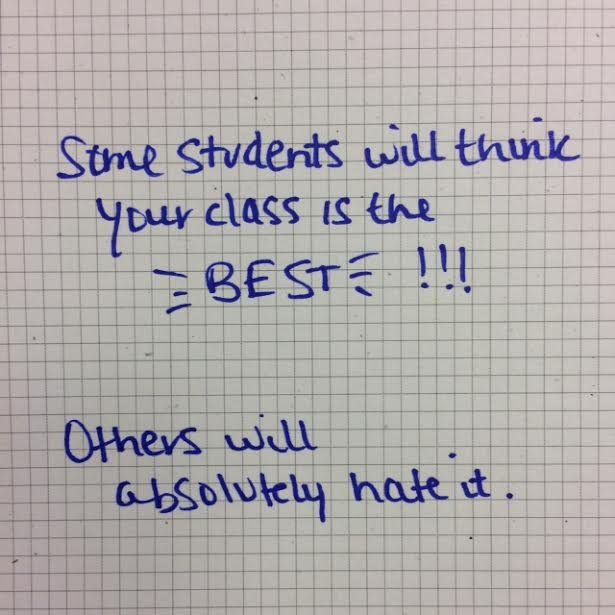 Some students will think
your class is the
BEST !!!
Others will
absolutely hate it.